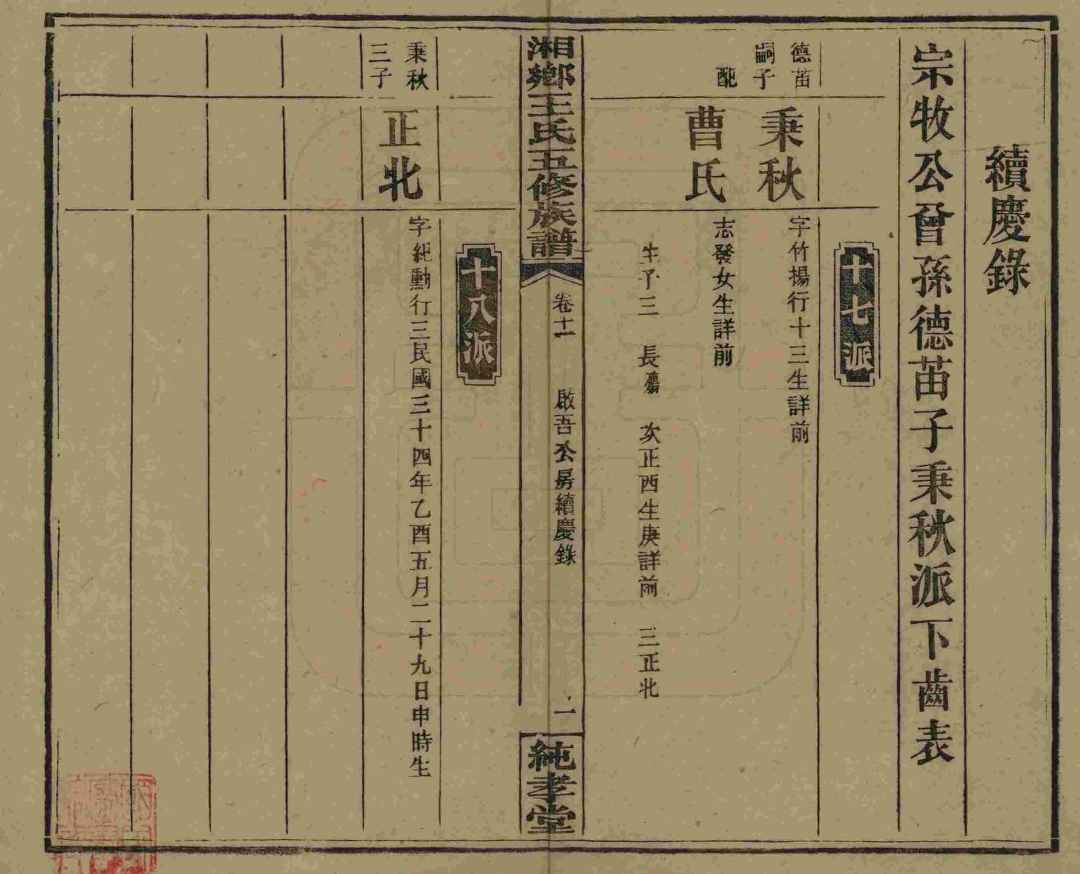 續慶錄
宗牧公曾孫德苗子秉秋派下齒表
十七派
德苗
嗣子
秉秋
字竹揚行十三生詳前
配
曹氏
志發女生詳前
生子三 長 次正西生庚詳前 三正北
湘鄉王氏五修族譜
卷十一
啟吾公房續慶錄
一
純孝堂
十八派
秉秋
三子
正北
字紀勳行三民國三十四年乙酉五月二十九日申時生